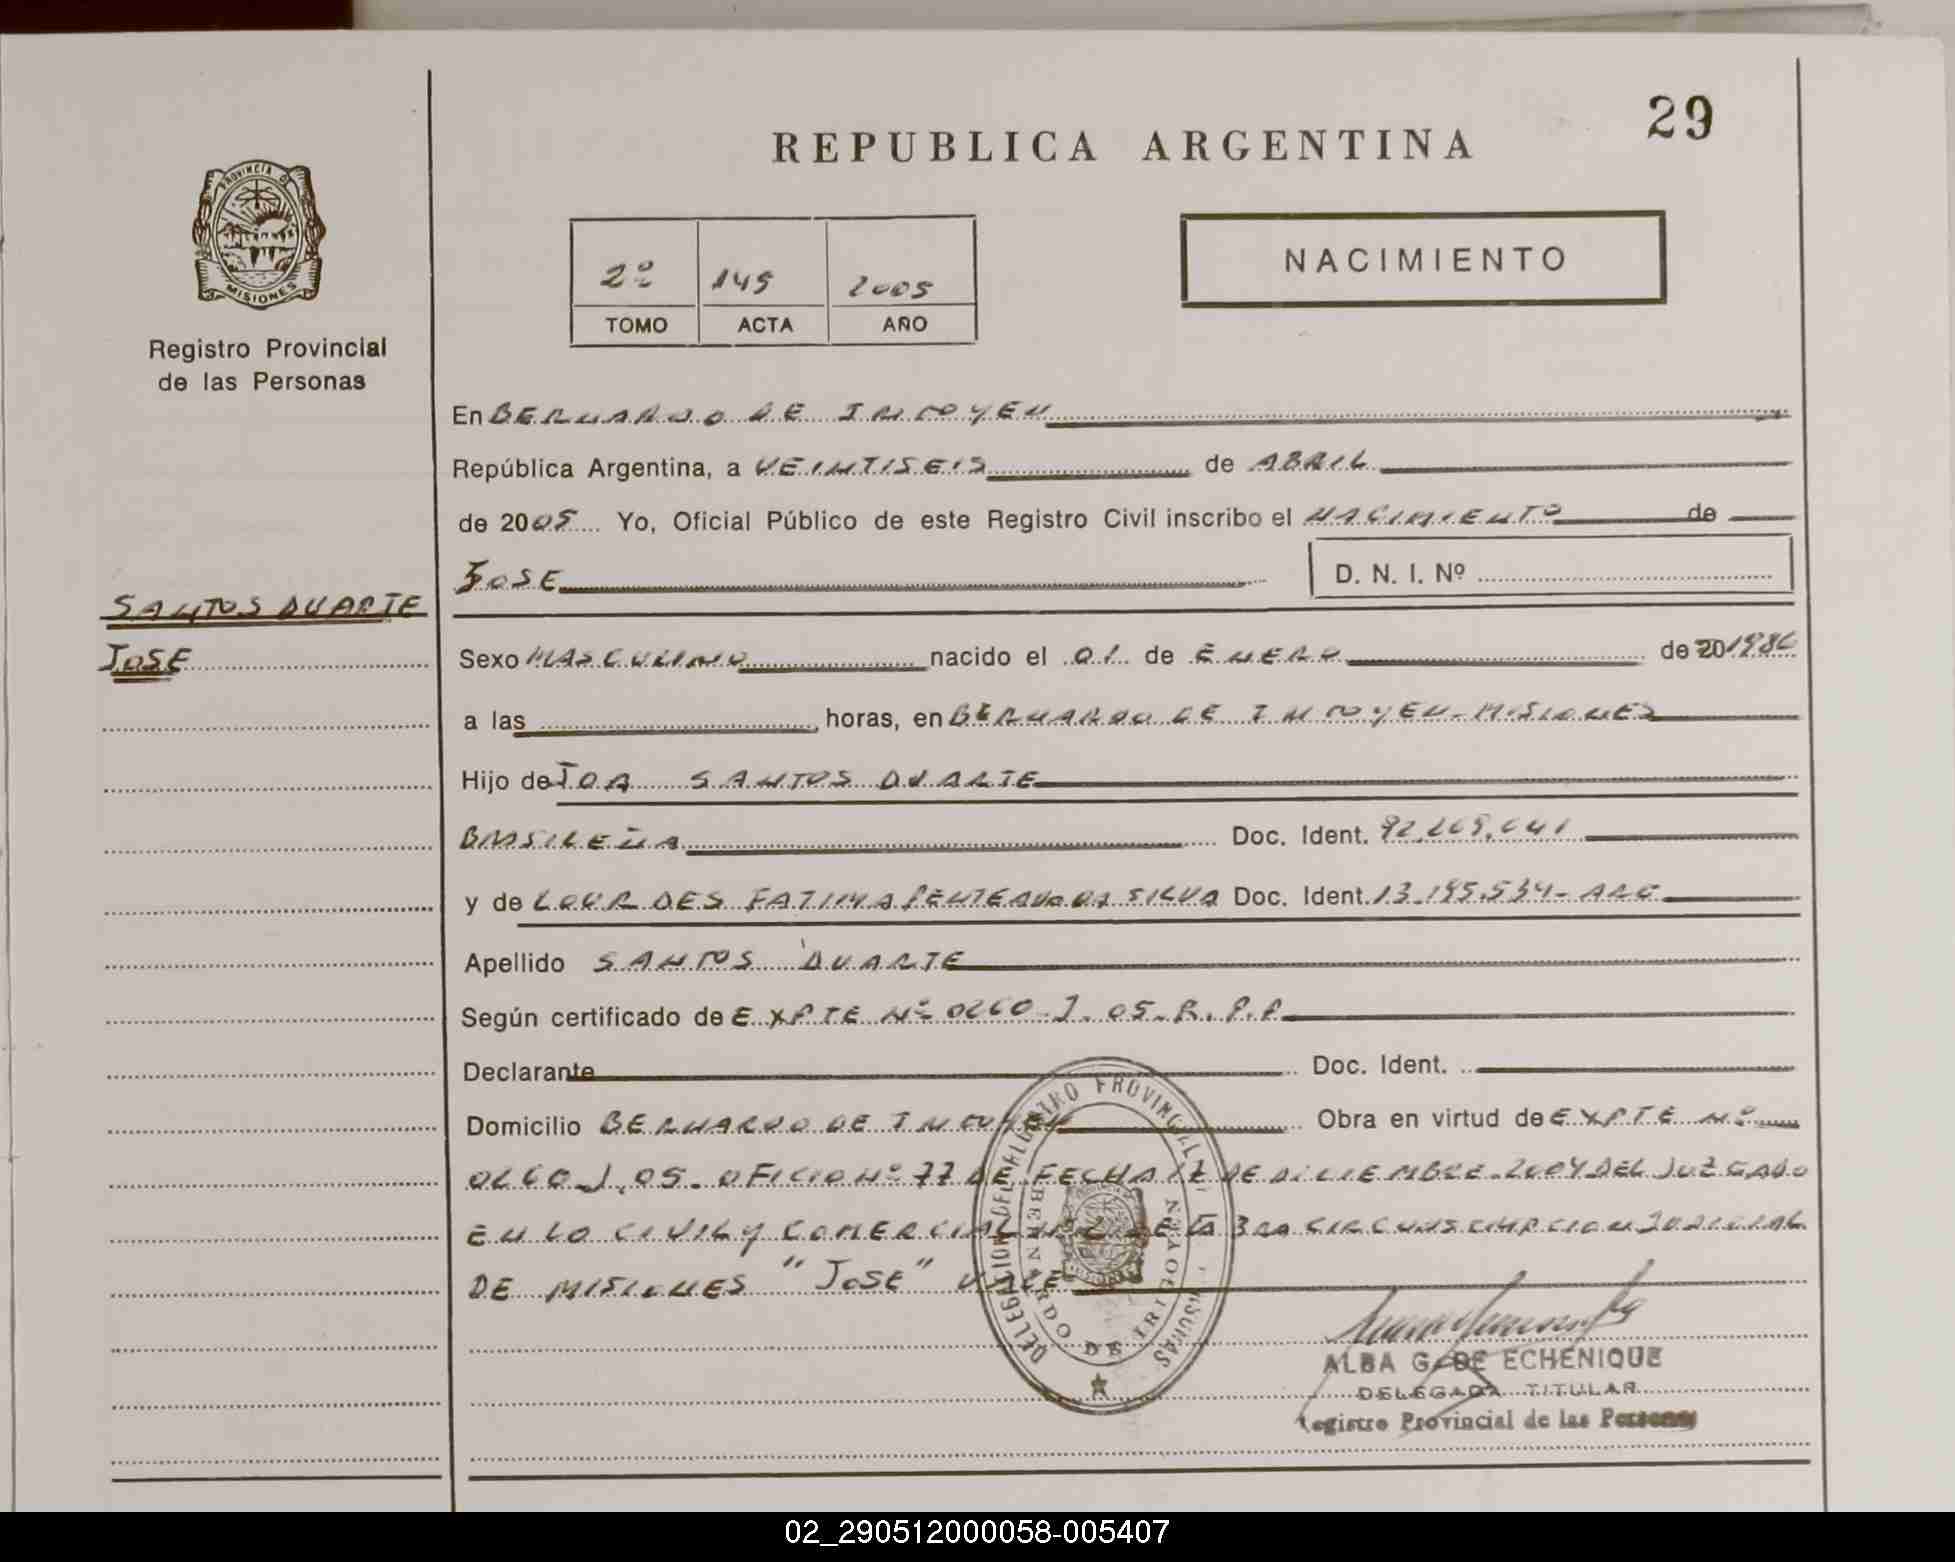 29
REPUBLICA ARGENTINA
PROVINCIA DE
MISIONES
Registro Provincial
de las Personas
2º 145 2005
TOMO ACTA AÑO
NACIMIENTO
En BERNARDO DE IRIGOYEN
República Argentina, a VEINTISEIS de ABRIL
de 2005 Yo, Oficial Público de este Registro Civil inscribo el NACIMIENTO de
JOSE D. N. I. Nº
SANTOS DUARTE
JOSE
Sexo MASCULINO nacido el 01 de ENERO de 20 1986
a las horas, en BERNARDO DE IRIGOYEN - MISIONES
Hijo de JOA SANTOS DUARTE
BRASILEÑA Doc. Ident.
y de LOURDES FATIMA PENTEADO DA SILVA Doc. Ident. 13.195.534 - ARG
Apellido SANTOS DUARTE
Según certificado de EXPTE Nº 0260-J-05-R.P.P
Declarante Doc. Ident.
Domicilio BERNARDO DE IRIGOYEN Obra en virtud de EXPTE Nº
0260-J-05- OFICIO Nº 77 DE FECHA 17 DE DICIEMBRE-2004 DEL JUZGADO
EN LO CIVIL Y COMERCIAL DE LA 3RA CIRCUNSCRIPCION JUDICIAL
DE MISIONES "JOSE" VALE
DELEGACION DEL REGISTRO PROVINCIAL
BERNARDO DE IRIGOYEN
ALBA G. DE ECHENIQUE
DELEGADA TITULAR
Registro Provincial de las Personas
02_290512000058-005407